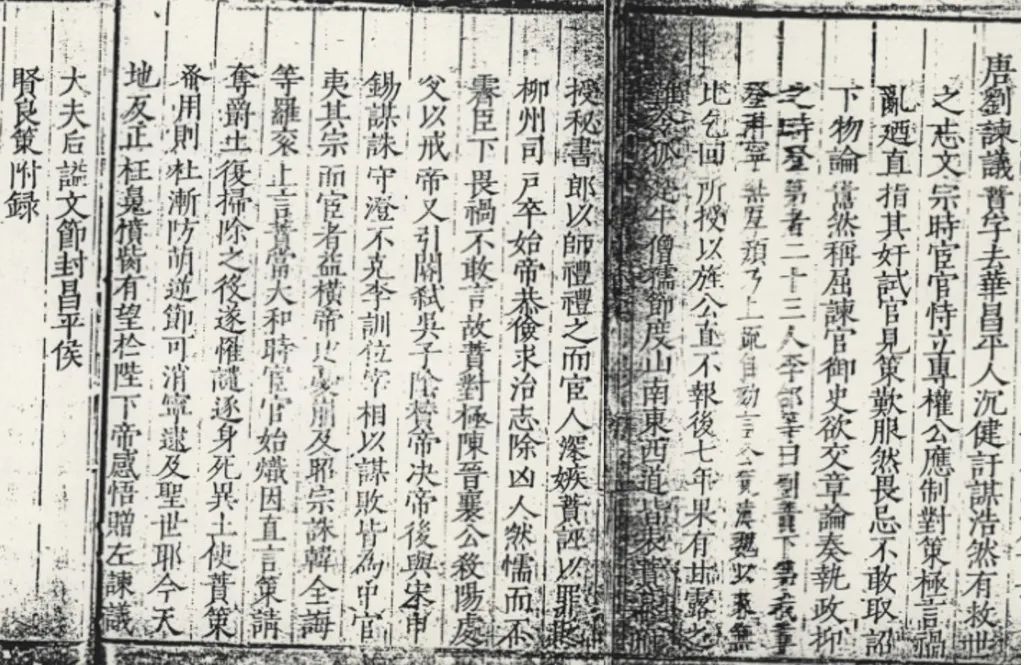 唐劉諫議蕡字去華昌平人沉健訏謀浩然有救世
之志文宗時宦官恃立專權公應制對策極言禍
亂廼直指其奸試官見策歎服然畏忌不敢取詔
下物論嚻然稱屈諫官御史欲交章論奏執政抑
之時登第者二十三人李郃等曰劉蕡下第我輩
登科寧無
比乞回所授以旌公直不報後七年果有甘露之
難令狐楚牛僧孺節度山南東西道皆表蕡幕府
授秘書郎以師禮禮之而宦人深嫉蕡誣以罪貶
柳州司戶卒始帝恭儉求治志除凶人然懦而不
睿臣下畏禍不敢言故蕡對極陳晉襄公殺陽處
父以戒帝又引閽弒吳子陰贊帝決帝後與宋申
錫謀誅守澄不克李訓位宰相以謀敗皆為中官
夷其宗而宦者益橫帝以憂崩及昭宗誅韓全誨
等羅衮上言蕡當大和時宦官始熾因直言策請
奪爵土復掃除之後遂罹譴逐身死異土使蕡策
發用則杜漸防萌逆節可消寧逮及聖世耶今天
地反正枉冤憤胔有望於陛下帝感悟贈左諫議
大夫后謚文節封昌平侯
賢良策附録